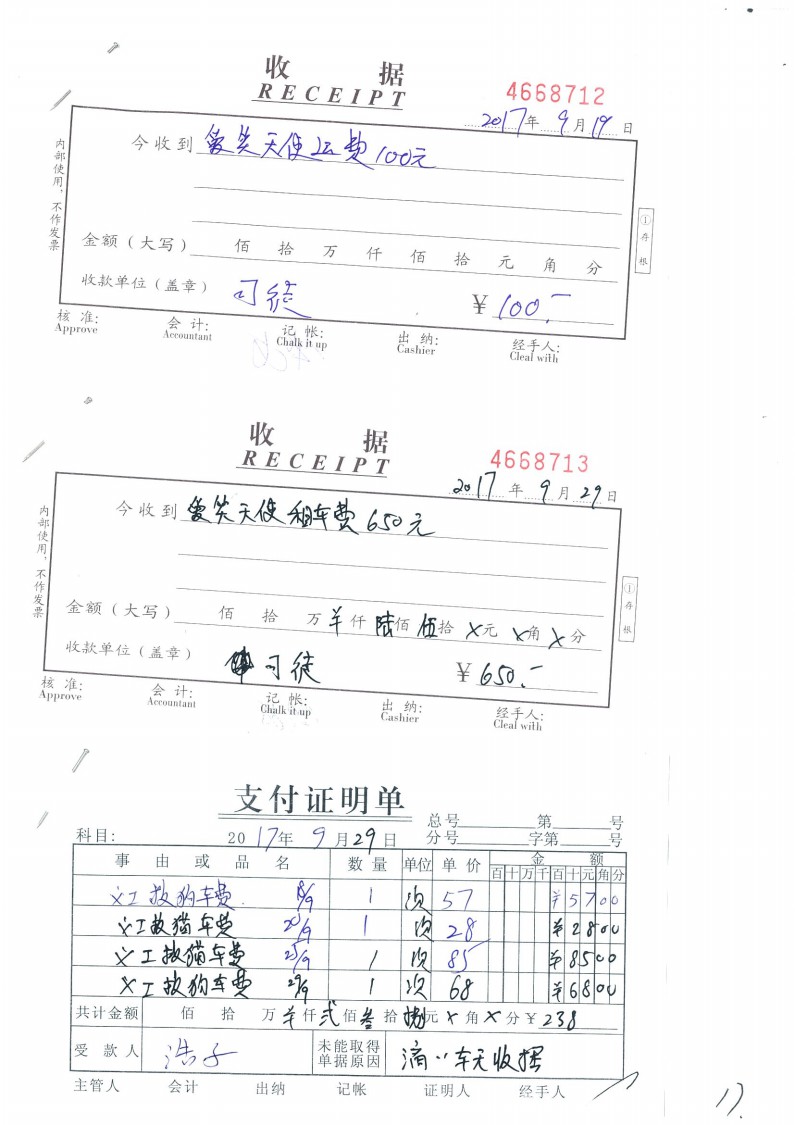 收 据
RECEIPT
4668712
2017年 9月19日
今收到 爱笑天使运费100元
金额（大写） 佰 拾 万 仟 佰 拾 元 角 分
收款单位（盖章） 司徒 ￥100.-
内部使用，不作发票
①存根
核 准: 会 计: 记 帐: 出 纳: 经手人:
Approve Accountant Chalk it up Cashier Cleal with
收 据
RECEIPT
4668713
2017年 9月29日
今收到 爱笑天使租车费650元
金额（大写） 佰 拾 万 羊仟 陆佰 伍拾 X元 X角 X分
收款单位（盖章） 司徒 ￥650.-
内部使用，不作发票
①存根
核 准: 会 计: 记 帐: 出 纳: 经手人:
Approve Accountant Chalk it up Cashier Cleal with
支付证明单
总号 第 号
科目: 2017年 9月29日 分号 字第 号
事由或品名 数量 单位 单价 金额
百十万千百十元角分
义工救狗车费 1 次 57 ￥5700
义工救猫车费 1 次 28 ￥2800
义工救猫车费 25/9 1 次 85 ￥8500
义工救狗车费 29/9 1 次 68 ￥6800
共计金额 佰 拾 万 羊仟 弐佰 叁拾 捌元 X角 X分 ￥238
受款人 浩子 未能取得单据原因 滴滴车无收据
主管人 会计 出纳 记帐 证明人 经手人
17.